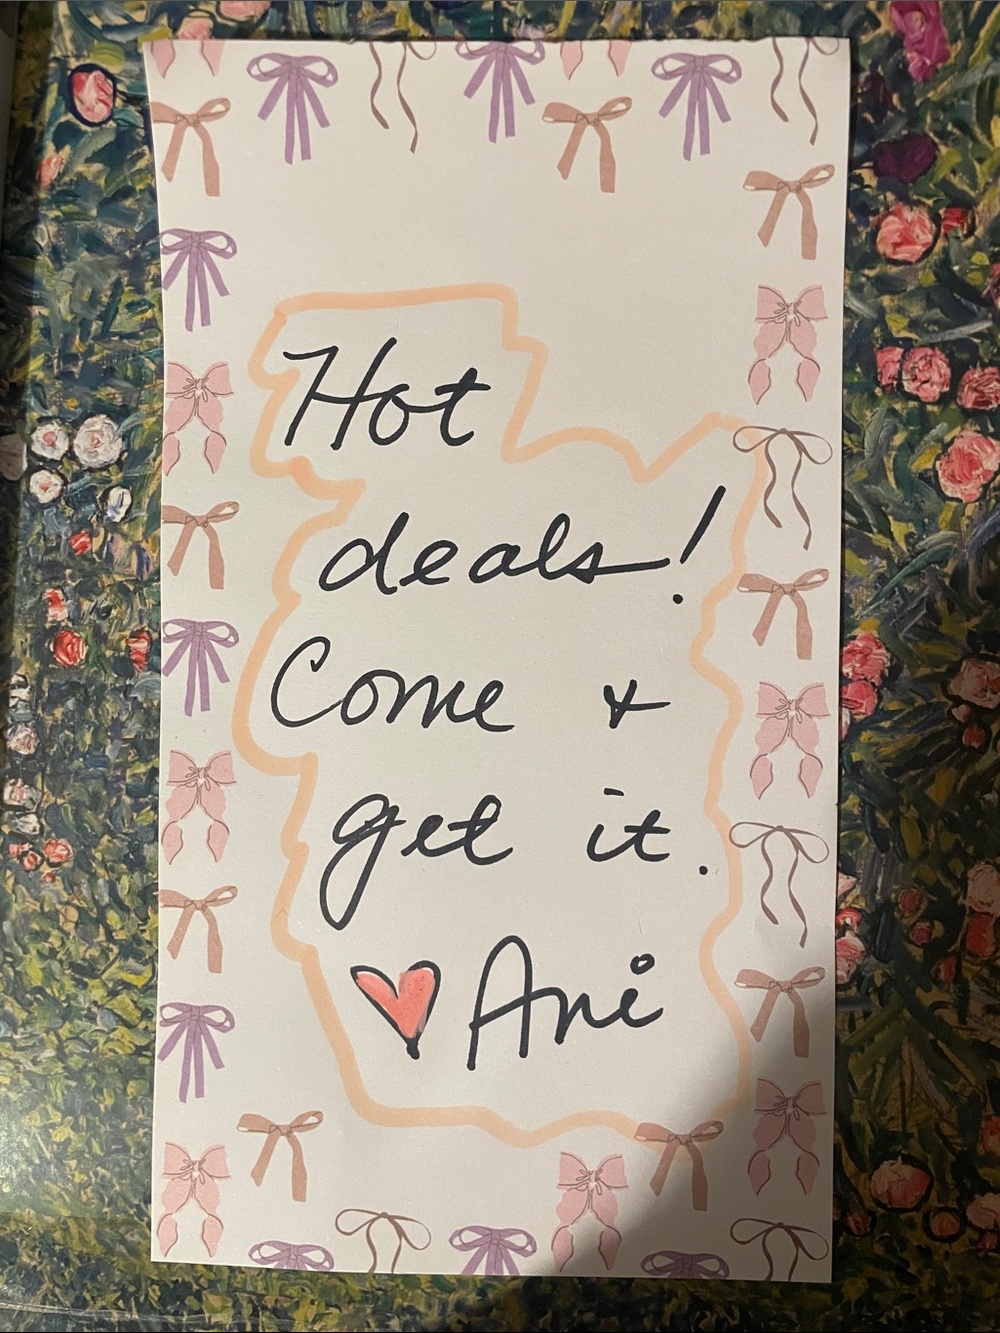 Hot
deals!
Come &
get it.
♥ Ani